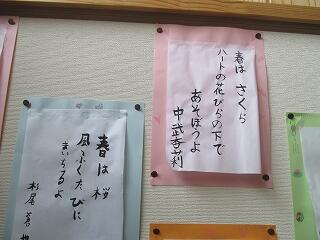 春は さくら
ハートの花びらの下で
あそぼうよ
春は 桜
風ふくたびに
まいちるよ
杉尾